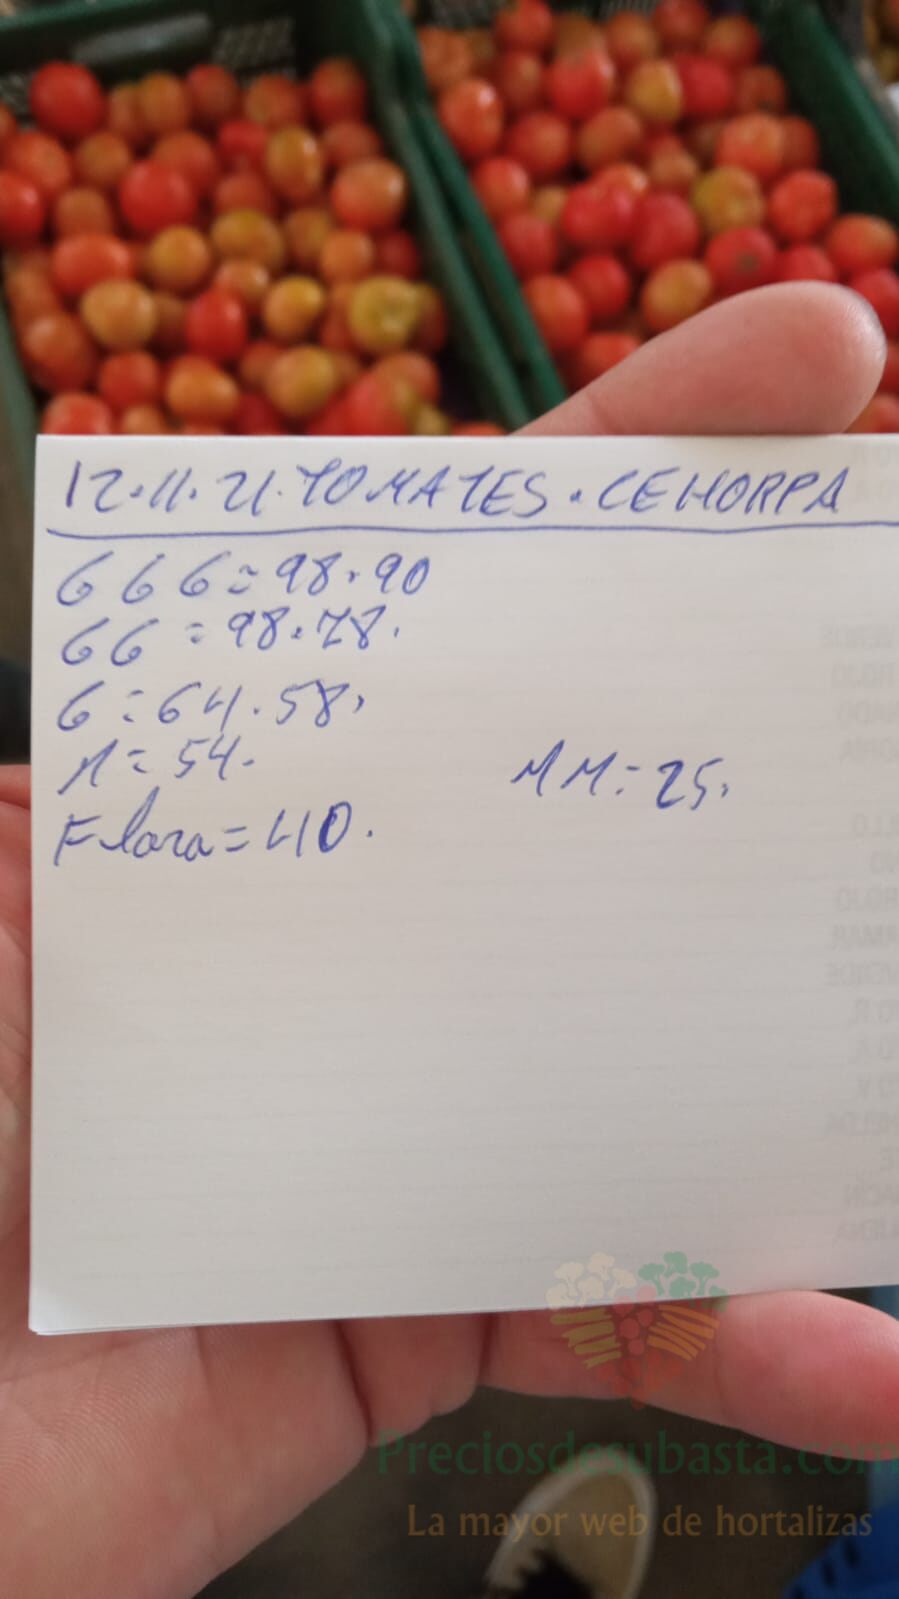 12.11.21. TOMATES. CEHORPA
G G G = 98.90
G G = 98.78.
G = 64.58,
M = 54.
MM = 25,
Flora = 40.
Preciosdesubasta.com
La mayor web de hortalizas